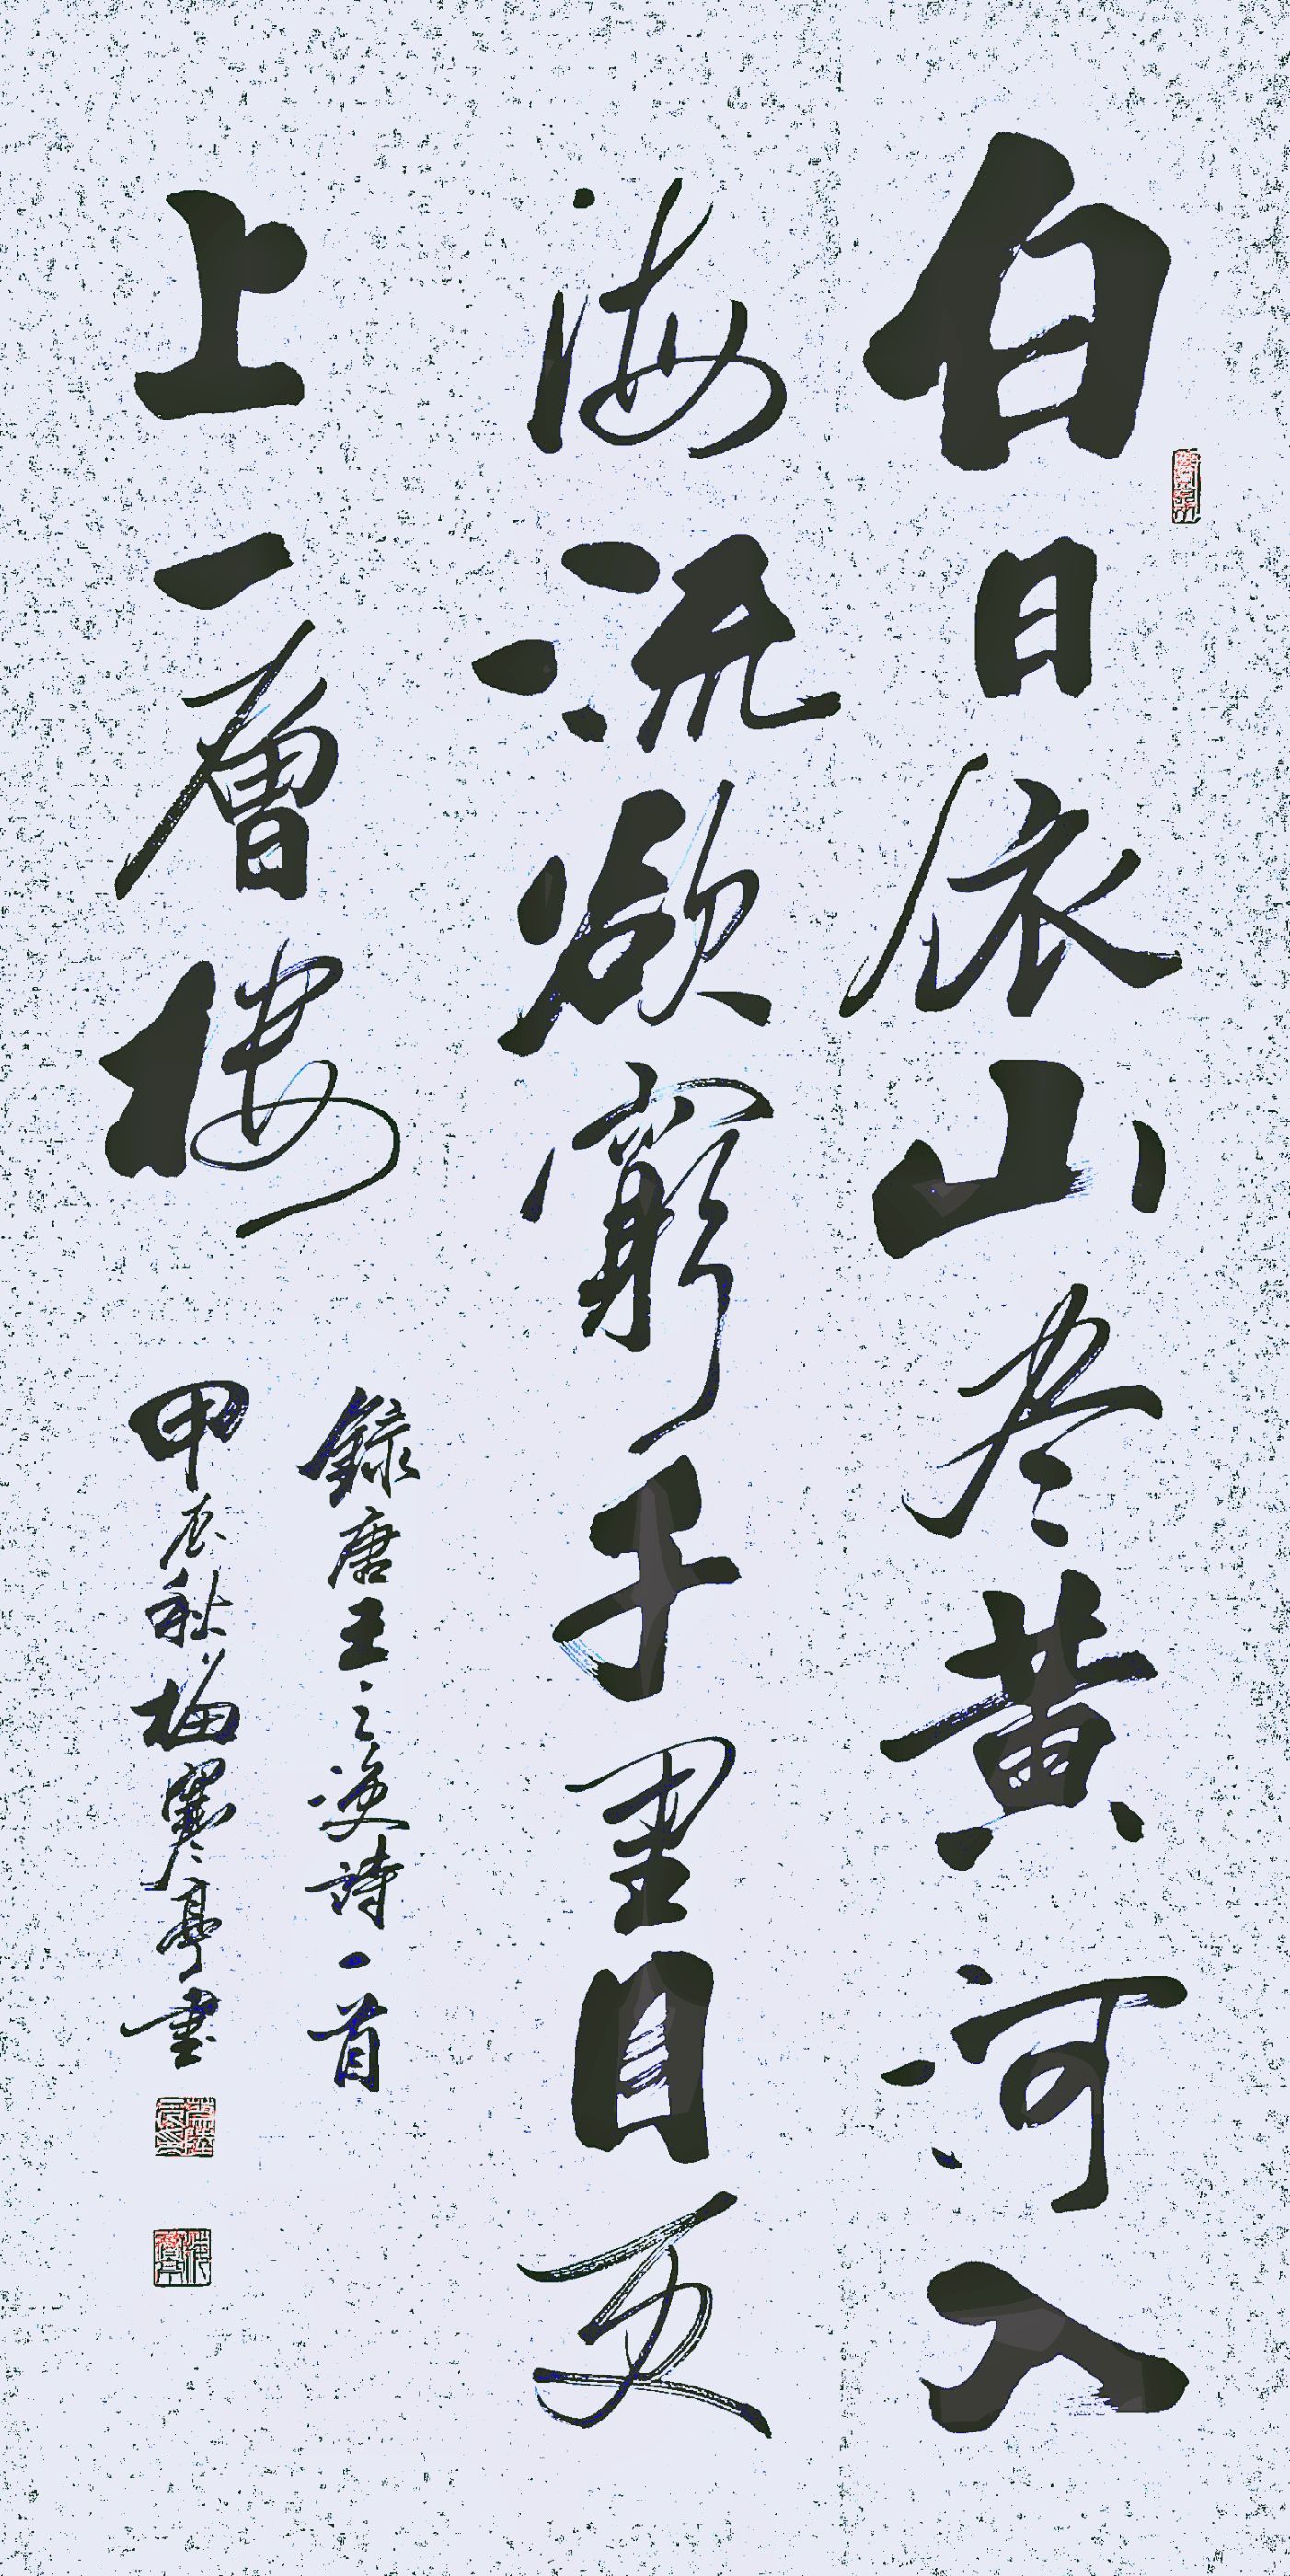 白日依山尽黄河入
海流欲窮千里目更
上一層樓
錄唐王之渙詩一首
甲辰秋梅寒亭書